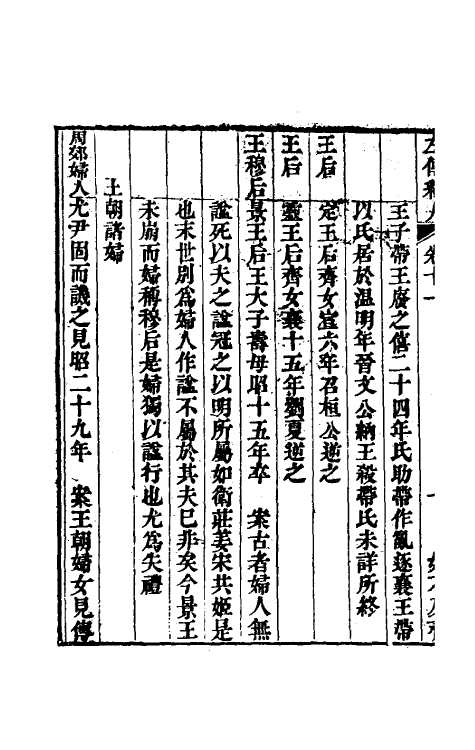 左傳釋人 卷十一
王子帶王廢之僖二十四年氏助帶作亂逐襄王帶
以氏居於溫明年晉文公納王殺帶氏未詳所終
王后 定王后齊女宣六年召桓公逆之
王后 靈王后齊女襄十五年劉夏逆之
王穆后景王后王大子壽母昭十五年卒 案古者婦人無
諡死以夫之諡冠之以明所屬如衛莊姜宋共姬是
也末世別爲婦人作諡不屬於其夫已非矣今景王
未崩而婦稱穆后是婦獨以諡行也尤爲失禮
王朝諸婦
周郊婦人尤尹固而譏之見昭二十九年 案王朝婦女見傳